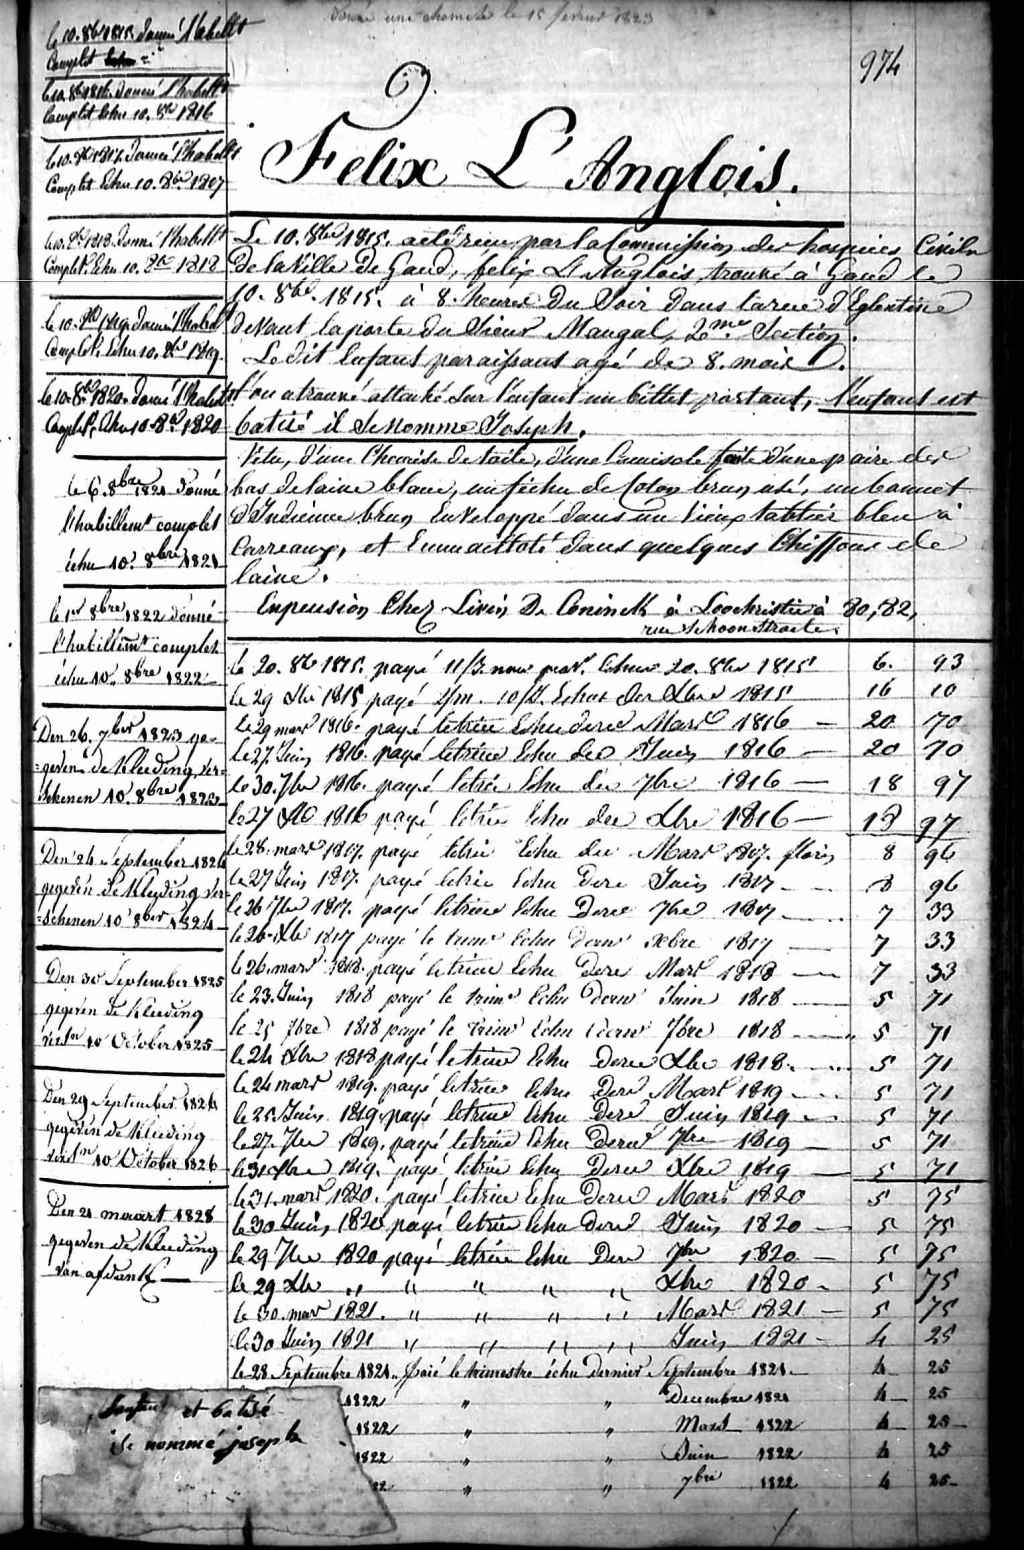 Donné une chemise le 15 fevrier 1823
974
le 10. 8bre 1815. donné l'habillt
Complet
le 10. 8bre 1816. donné l'habillt
Complet Echu 10. 8bre 1816
le 10. 8bre 1817. donné l'habillt
Complet Echu 10. 8bre 1817
le 10. 8bre 1818. donné l'habillt
Complet. Echu 10. 8bre 1818
le 10. 8bre 1819. donné l'habillt
Complet. Echu 10. 8bre 1819.
le 10. 8bre 1820. donné l'habillt
Complet. Echu 10. 8bre 1820
le 6. 8bre 1821 donné
l'habillemt complet
échu 10. 8bre 1821
le 1er 8bre 1822 donné
l'habillemt complet
échu 10. 8bre 1822
Den 26. 7ber 1823 ge-
=geven de Kleeding ver-
schenen 10. 8bre 1823
Den 24 September 1824
gegeven de Kleeding ver-
=schenen 10 8ber 1824
Den 30 September 1825
gegeven de Kleeding
versn 10 October 1825
Den 29 September 1826
gegeven de Kleeding
versn 10 October 1826
Den 21 maart 1828
gegeven de Kleeding
van afdank
Felix L'Anglois.
Le 10. 8bre 1815. a été reçu par la Commission des hospices Civils
De la Ville De Gand, felix L'Anglois, trouvé à Gand le
10. 8bre. 1815. à 8. heures Du Soir dans la rue d'Eglentine
devant la porte du Sieur Mangal, 2me Section.
Le dit Enfant paraissant agé de 8. mois.
l'on a trouvé attaché sur l'enfant un billet portant, l'enfant est
batisé il se nomme Joseph.
Vetu, d'une Chemise de toile, d'une Camisole faite d'une paire de
bas de laine blanc, un fichu de Coton brun usé, un bonnet
d'Indienne brun Enveloppé dans un vieux tablier bleu à
Carreaux, et Emmailloté dans quelques Chiffons de
laine.
En pension Chez Livin De Coninck à Loochristie à 80,82,
rue Schoonstraete
le 20. 8bre 1815. payé 11/J. nour par. Echu 20. 8bre 1815 6. 93
le 29 Xbre 1815 payé 2/m. 10/J. Echus der Xbre 1815 16 10
le 29 mars 1816. payé le trim Echu dere Mars 1816 — 20 70
le 27 Juin 1816. payé le trim Echu der Juin 1816 — 20 70
le 30. 7bre 1816. payé le trim Echu der 7bre 1816 — 18 97
le 27 Xbre 1816 payé le trim Echu der Xbre 1816 — 18 97
le 28. mars 1817. payé le trim Echu der Mars 1817. florins 8 96
le 27 Juin 1817. payé le trim Echu dere Juin 1817 — 8 96
le 26 7bre 1817. payé le trim Echu Dere 7bre 1817 — 7 33
le 26. Xbre 1817 payé le trim Echu dern Xbre 1817 — 7 33
le 26. mars 1818. payé le trim Echu Dere Mars 1818 — 7 33
le 23. Juin 1818 payé le trim Echu dern Juin 1818 — 5 71
le 25 7bre 1818 payé le trim Echu dern 7bre 1818 — 5 71
le 24 Xbre 1818 payé le trim Echu dere Xbre 1818. — 5 71
le 24 mars 1819. payé le trim Echu Dere Mars 1819 — 5 71
le 25. Juin 1819. payé le trim Echu Dere Juin 1819 — 5 71
le 27. 7bre 1819. payé le trim Echu Dere 7bre 1819 5 71
le 31 Xbre 1819. payé le trim Echu Dere Xbre 1819 — 5 71
le 31. mars 1820. payé le trim Echu Dere Mars 1820 5 75
le 30 Juin 1820 payé le trim Echu dere Juin 1820 — 5 75
le 29 7bre 1820 payé le trim Echu Der 7bre 1820 — 5 75
le 29 Xbre " " " " " Xbre 1820 - 5 75
le 30. mars 1821. " " " " Mars 1821 — 5 75
le 30 Juin 1821 " " " " Juin 1821 — 4 25
le 28 Septembre 1821. Paié le trimestre échu dernier Septembre 1821. — 4 25
1822 " " Decembre 1821 4 25
1822 " " Mars 1822 4 25
1822 " " Juin 1822 4 25
22 " " 7bre 1822 4 25
l'enfant et batisé
i se nommé joseph